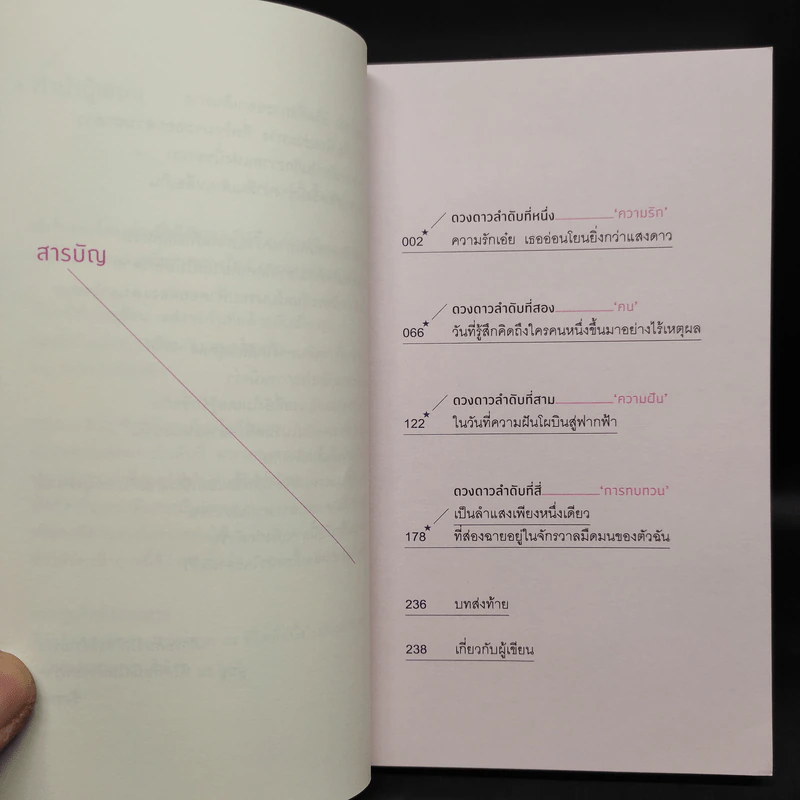 สารบัญ
ดวงดาวลำดับที่หนึ่ง 'ความรัก'
002 ความรักเอ๋ย เธออ่อนโยนยิ่งกว่าแสงดาว
ดวงดาวลำดับที่สอง 'คน'
066 วันที่รู้สึกคิดถึงใครคนหนึ่งขึ้นมาอย่างไร้เหตุผล
ดวงดาวลำดับที่สาม 'ความฝัน'
122 ในวันที่ความฝันโผบินสู่ฟากฟ้า
ดวงดาวลำดับที่สี่ 'การทบทวน'
เป็นลำแสงเพียงหนึ่งเดียว
178 ที่ส่องฉายอยู่ในจักรวาลมืดมนของตัวฉัน
236 บทส่งท้าย
238 เกี่ยวกับผู้เขียน